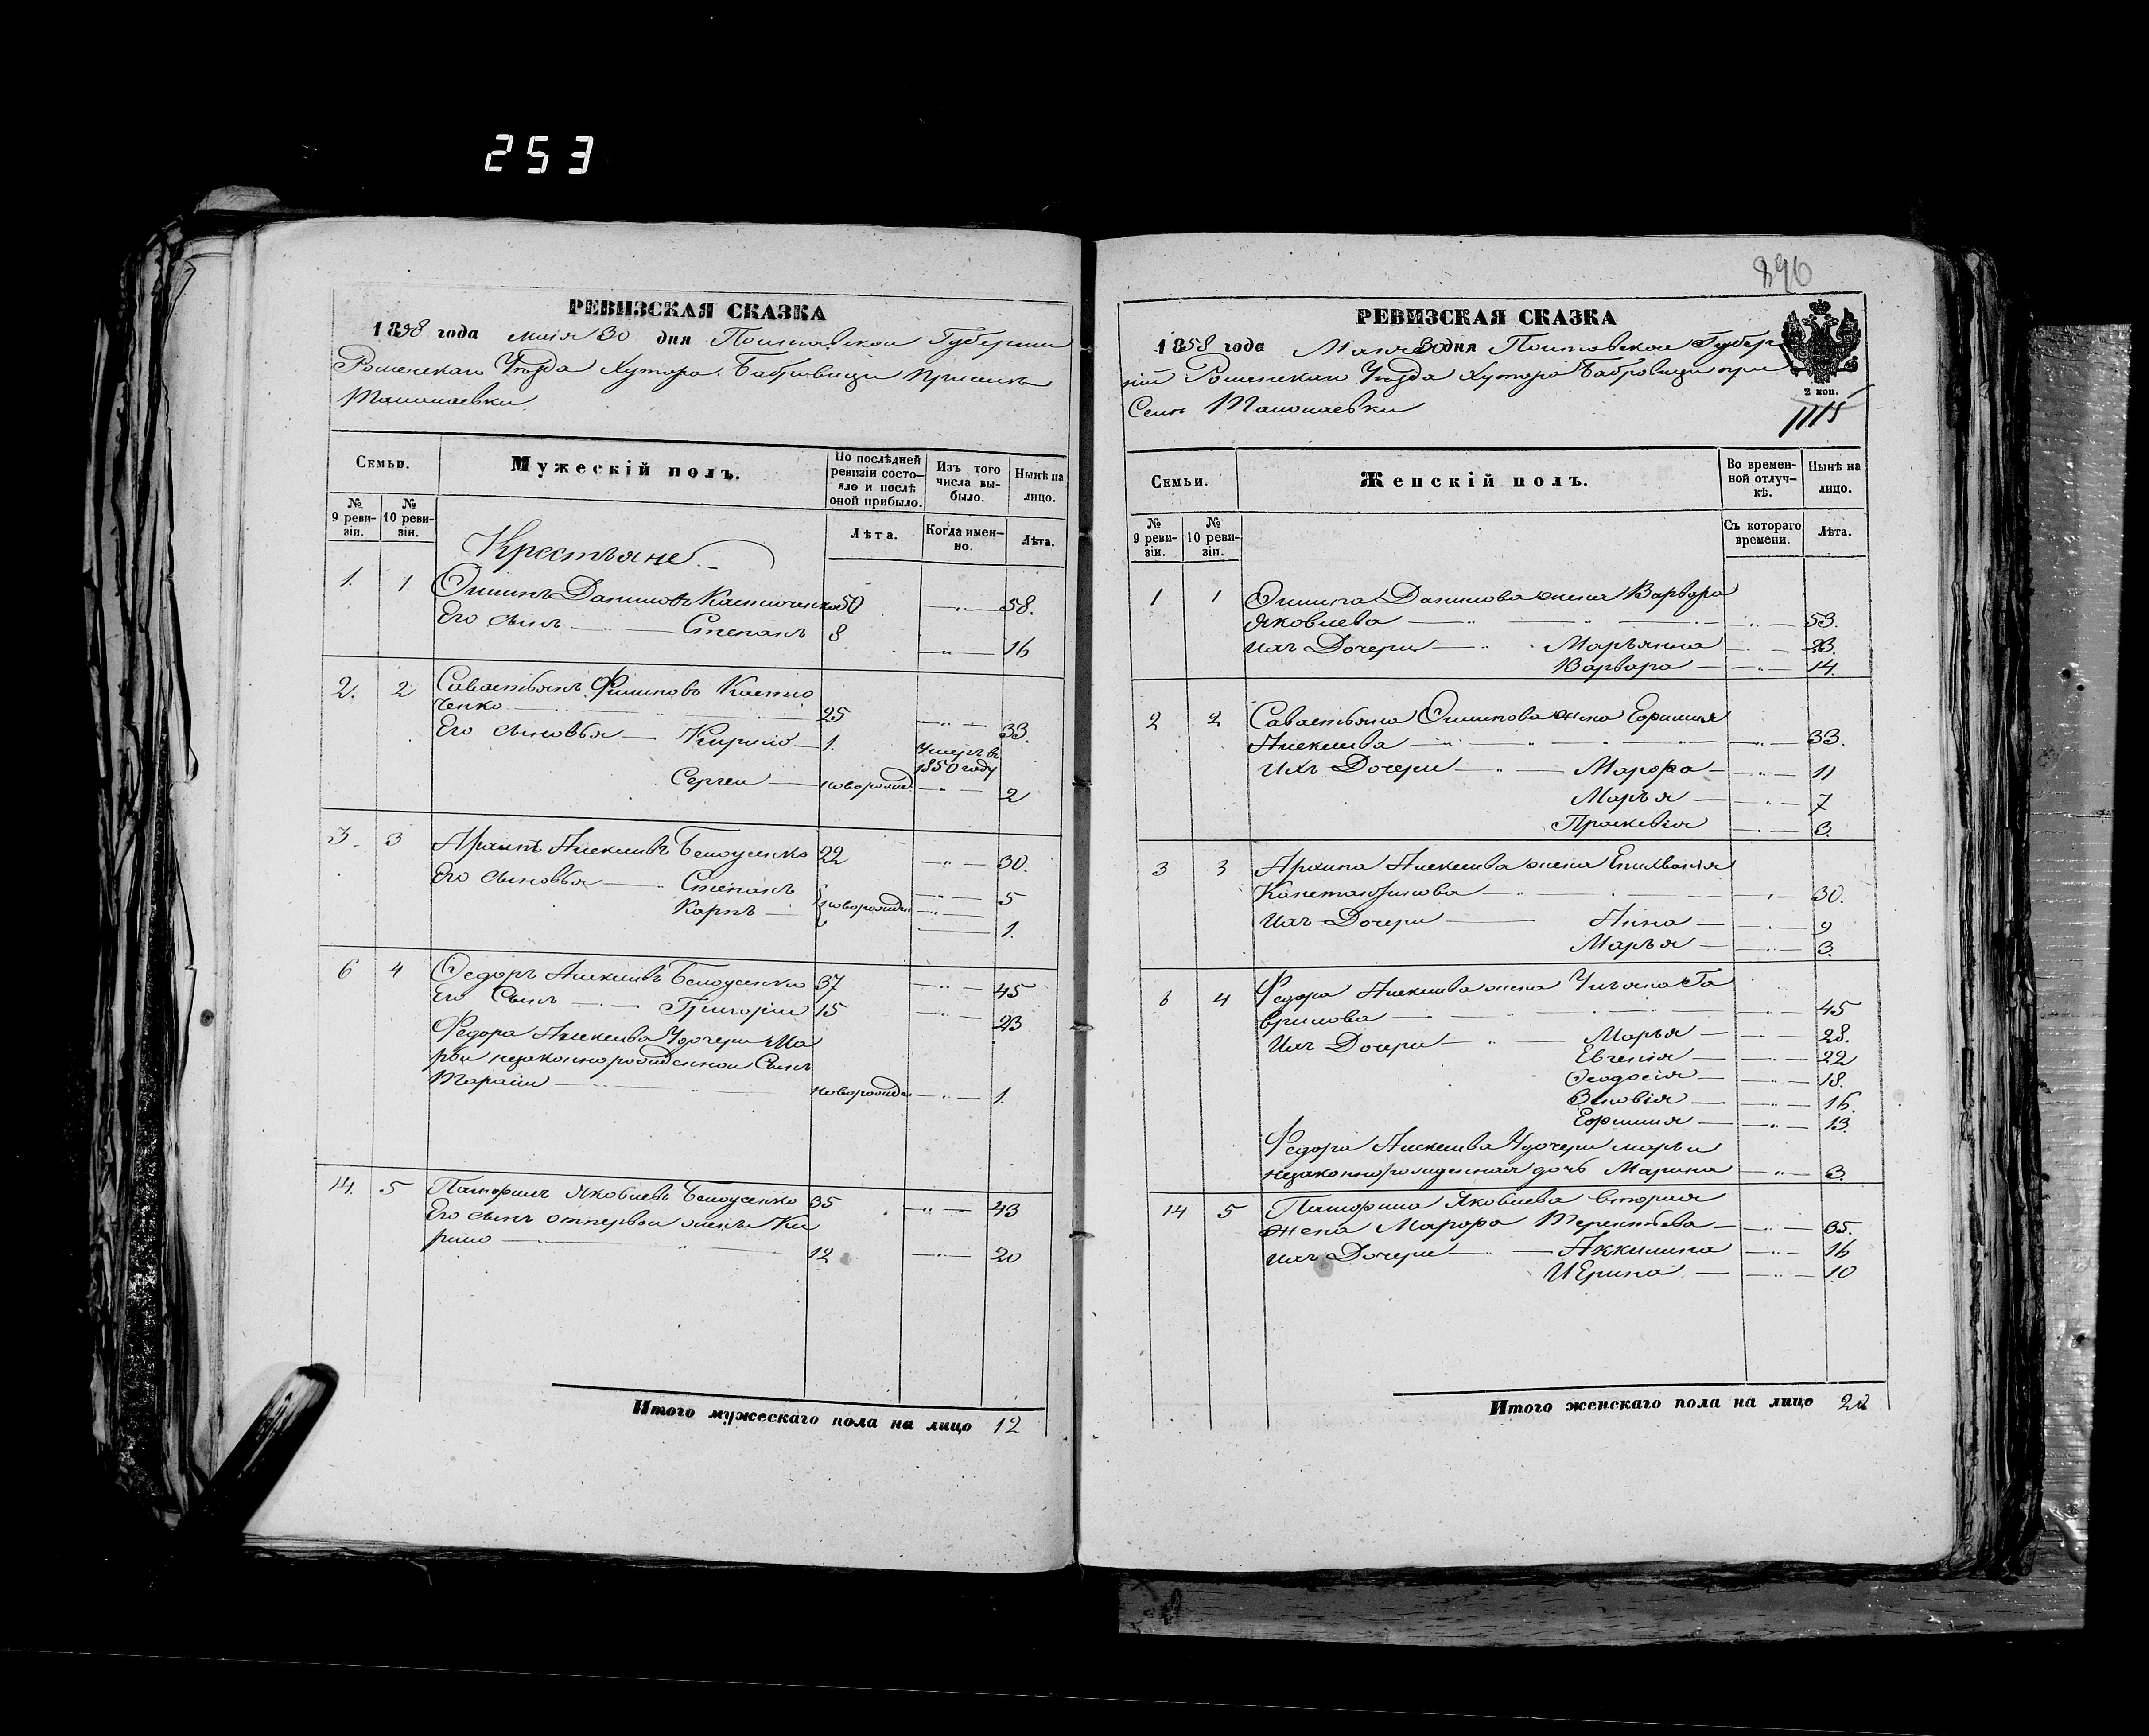 253
РЕВИЗСКАЯ СКАЗКА
1858 года маія 30 дня Полтавской Губерніи
Роменскаго Уѣзда Хутора Бабровици при селѣ
Талалаевки
Семьи.
Мужескій полъ.
По послѣдней ревизіи состояло и послѣ оной прибыло.
Изъ того числа выбыло.
Нынѣ на лицо.
№ 9 ревизіи.
№ 10 ревизіи.
Лѣта.
Когда именно.
Лѣта.
Крестьяне
1. 1. Осипъ Даниловъ Костюченко 50 —"— 58.
Его сынъ — Степанъ 8 —"— 16
2. 2 Савастьянъ Осиповъ Костю
ченко — 25 —"— 33.
Его сыновья — Кирило — 1. Умеръ въ 1850 году
Сергей — новорожд —"— 2
3. 3 Архипъ Алексеевъ Белоусенко 22 —"— 30.
Его сыновья — Степанъ —"— 5
Карпъ — новорожден —"— 1.
6 4 Федоръ Алексеевъ Белоусенко 37 —"— 45
Его Сынъ — Григорій 15 —"— 23
Федора Алексеева У дочери Ма
рьи незаконнорожденной Сынъ
Тарасій — новорожден —"— 1.
14. 5 Памфилъ Яковлевъ Белоусенко 35 —"— 43
Его сынъ отпервой жены Ки
рило — 12 —"— 20
Итого мужескаго пола на лицо 12
896
РЕВИЗСКАЯ СКАЗКА
1858 года Маия 30 дня Полтавской Губер
ніи Роменскаго Уѣзда Хутора Бабровици при
Селѣ Талалаевки
2 коп.
1115
Семьи.
Женскій полъ.
Во временной отлучкѣ.
Нынѣ на лицо.
№ 9 ревизіи.
№ 10 ревизіи.
Съ котораго времени.
Лѣта.
1 1 Осипа Данилова жена Варвара
Яковлева — —"— 53.
ихъ Дочери — Марьянна 23.
Варвара —"— 14.
2 2 Савастьяна Осипова жена Ефимия
Алексеева — —"— 33.
Ихъ Дочери — Марфа —"— 11
Марья —"— 7
Праскевія —"— 3.
3 3 Архипа Алексеева жена
— —"— 30.
Ихъ Дочери — Анна —"— 9
Марья —"— 3.
6 4 Федора Алексеева жена Ульяна Га
врилова — —"— 45
Ихъ Дочери — Марья —"— 28.
Евгенія —"— 22
Феодосія —"— 18.
Зиновія —"— 16.
Ефимия —"— 13.
Федора Алексеева У дочери марьи
незаконнорожденная дочь Марина —"— 3.
14 5 Памфила Яковлева вторая
жена Марфа Терентьева —"— 35.
ихъ Дочери — Аккилина —"— 16
Ирина —"— 10
Итого женскаго пола на лицо